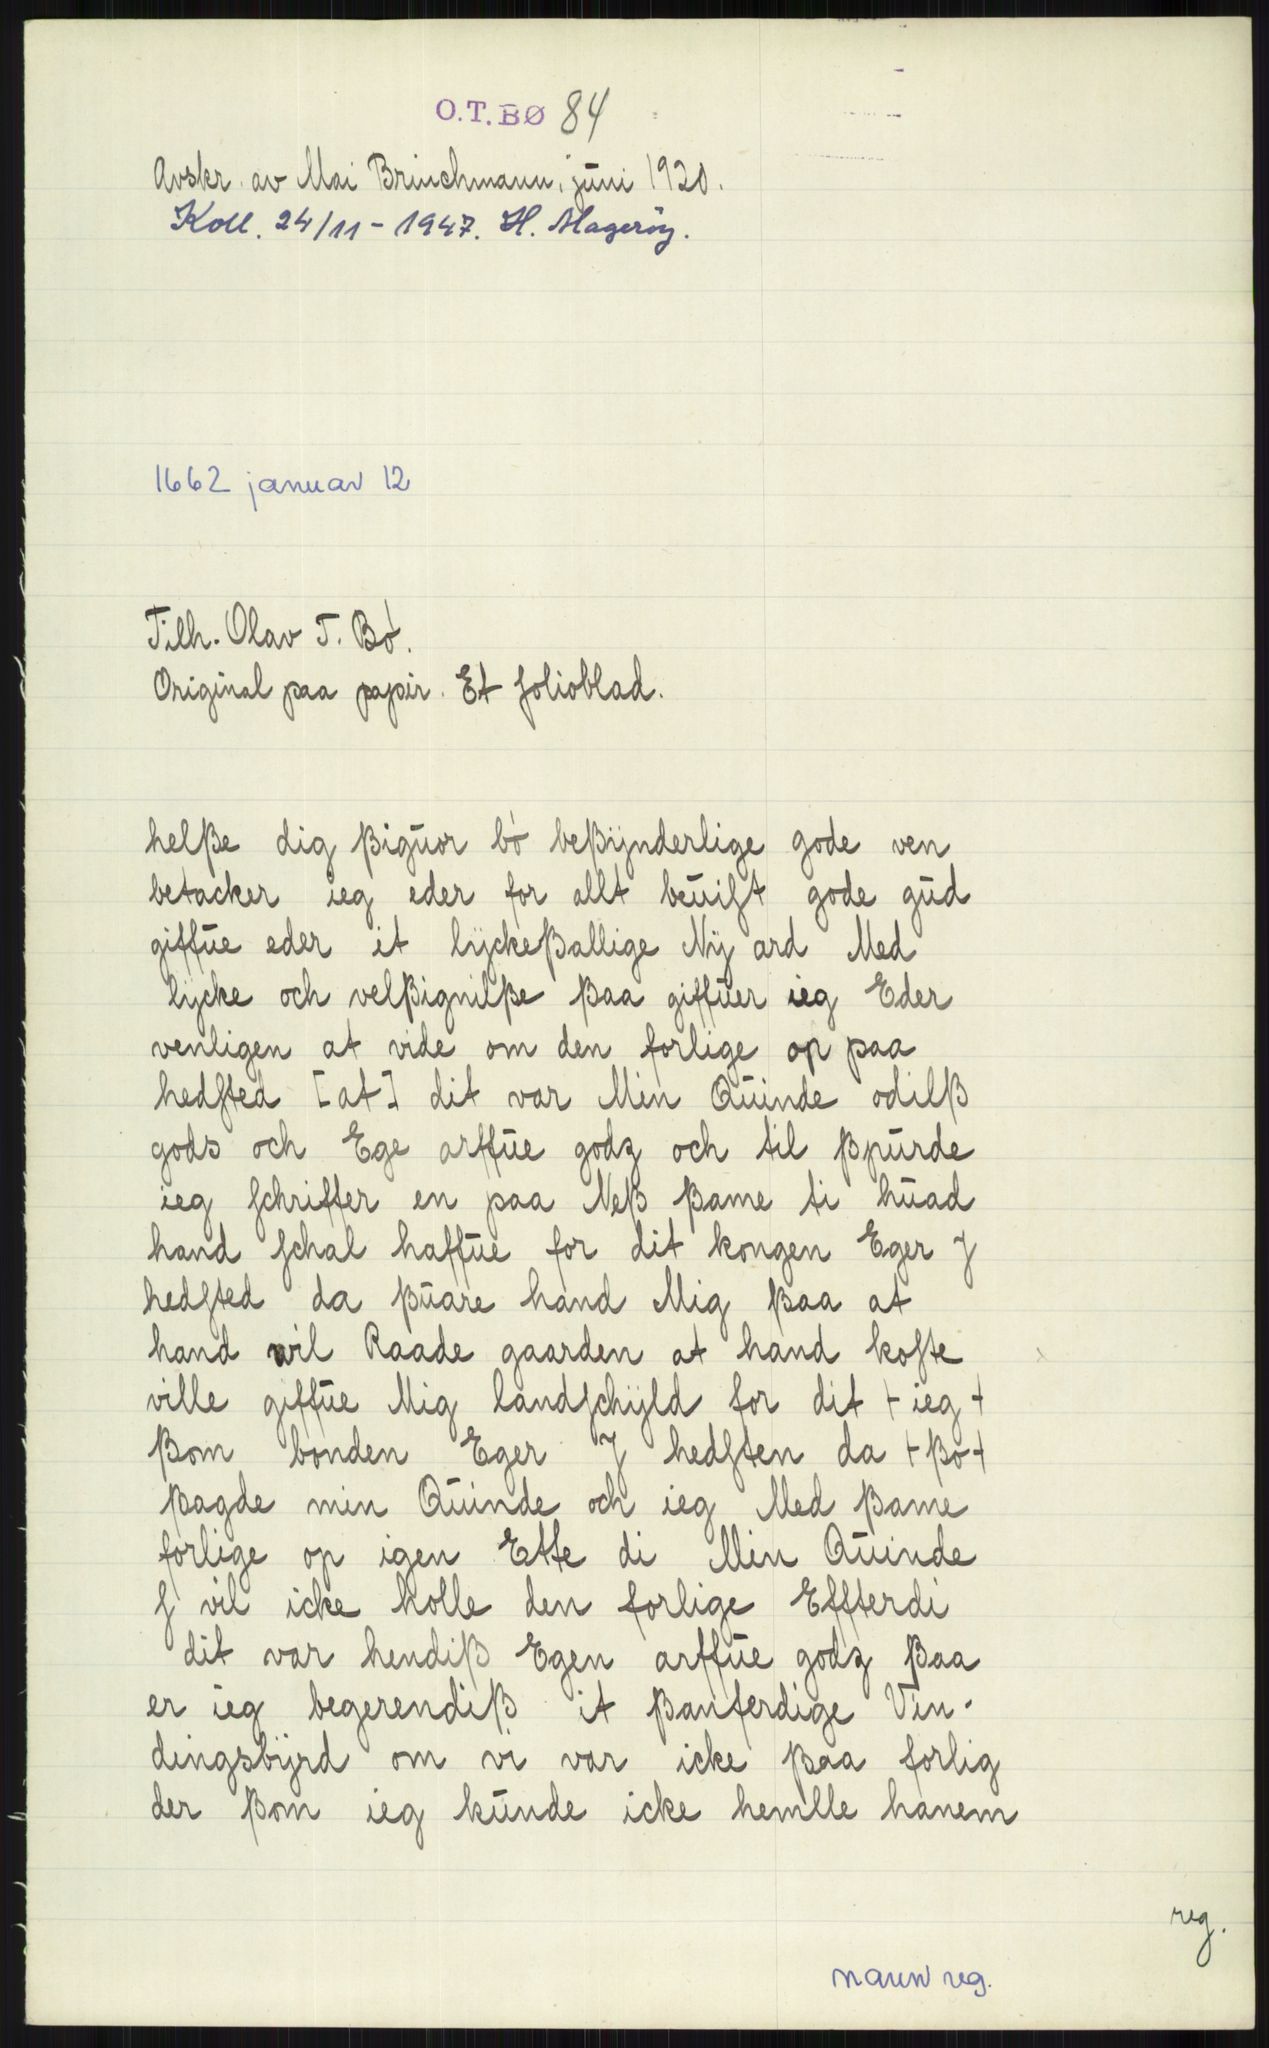 O.T.BØ 84
Avskr. av Mai Brinchmann, juni 1920.
Koll. 24/11 - 1947. H. Magerøy.
1662 januar 12
Tilh. Olav T. Bø.
Original paa papir. Et folioblad.
helße dig ßiguor bó beßÿnderlige gode ven
betacker ieg eder for allt beuiſt gode gud
giffue eder it lÿckeßallige Nÿ ard Med
lÿcke och velßignilße ßaa giffuer ieg Eder
venligen at vide om den forlige op paa
hedſted [at] dit var Min Quinde odilß
gods och Ege arffue godz och til ßpurde
ieg ſchriffer en paa Neß ßame ti huad
hand ſchal haffue for dit kongen Eger J
hedſted da ßuare hand Mig ßaa at
hand wil Raade gaarden at hand koſte
ville giffue Mig landſchÿld for dit ⊢ieg⊣
ßom bonden Eger J hedſten da ⊢ßo⊣
ßagde min Quinde och ieg Med ßame
forlige op igen Ette di Min Quinde
ſ vil icke holle den forlige Effterdi
dit var hendiß Egen arffue godz ßaa
er ieg begerendiß it ßanferdige Vin-
dingsbÿrd om vi var icke ßaa forlig
der ßom ieg kunde icke hemlle hanem
reg.
navn reg.